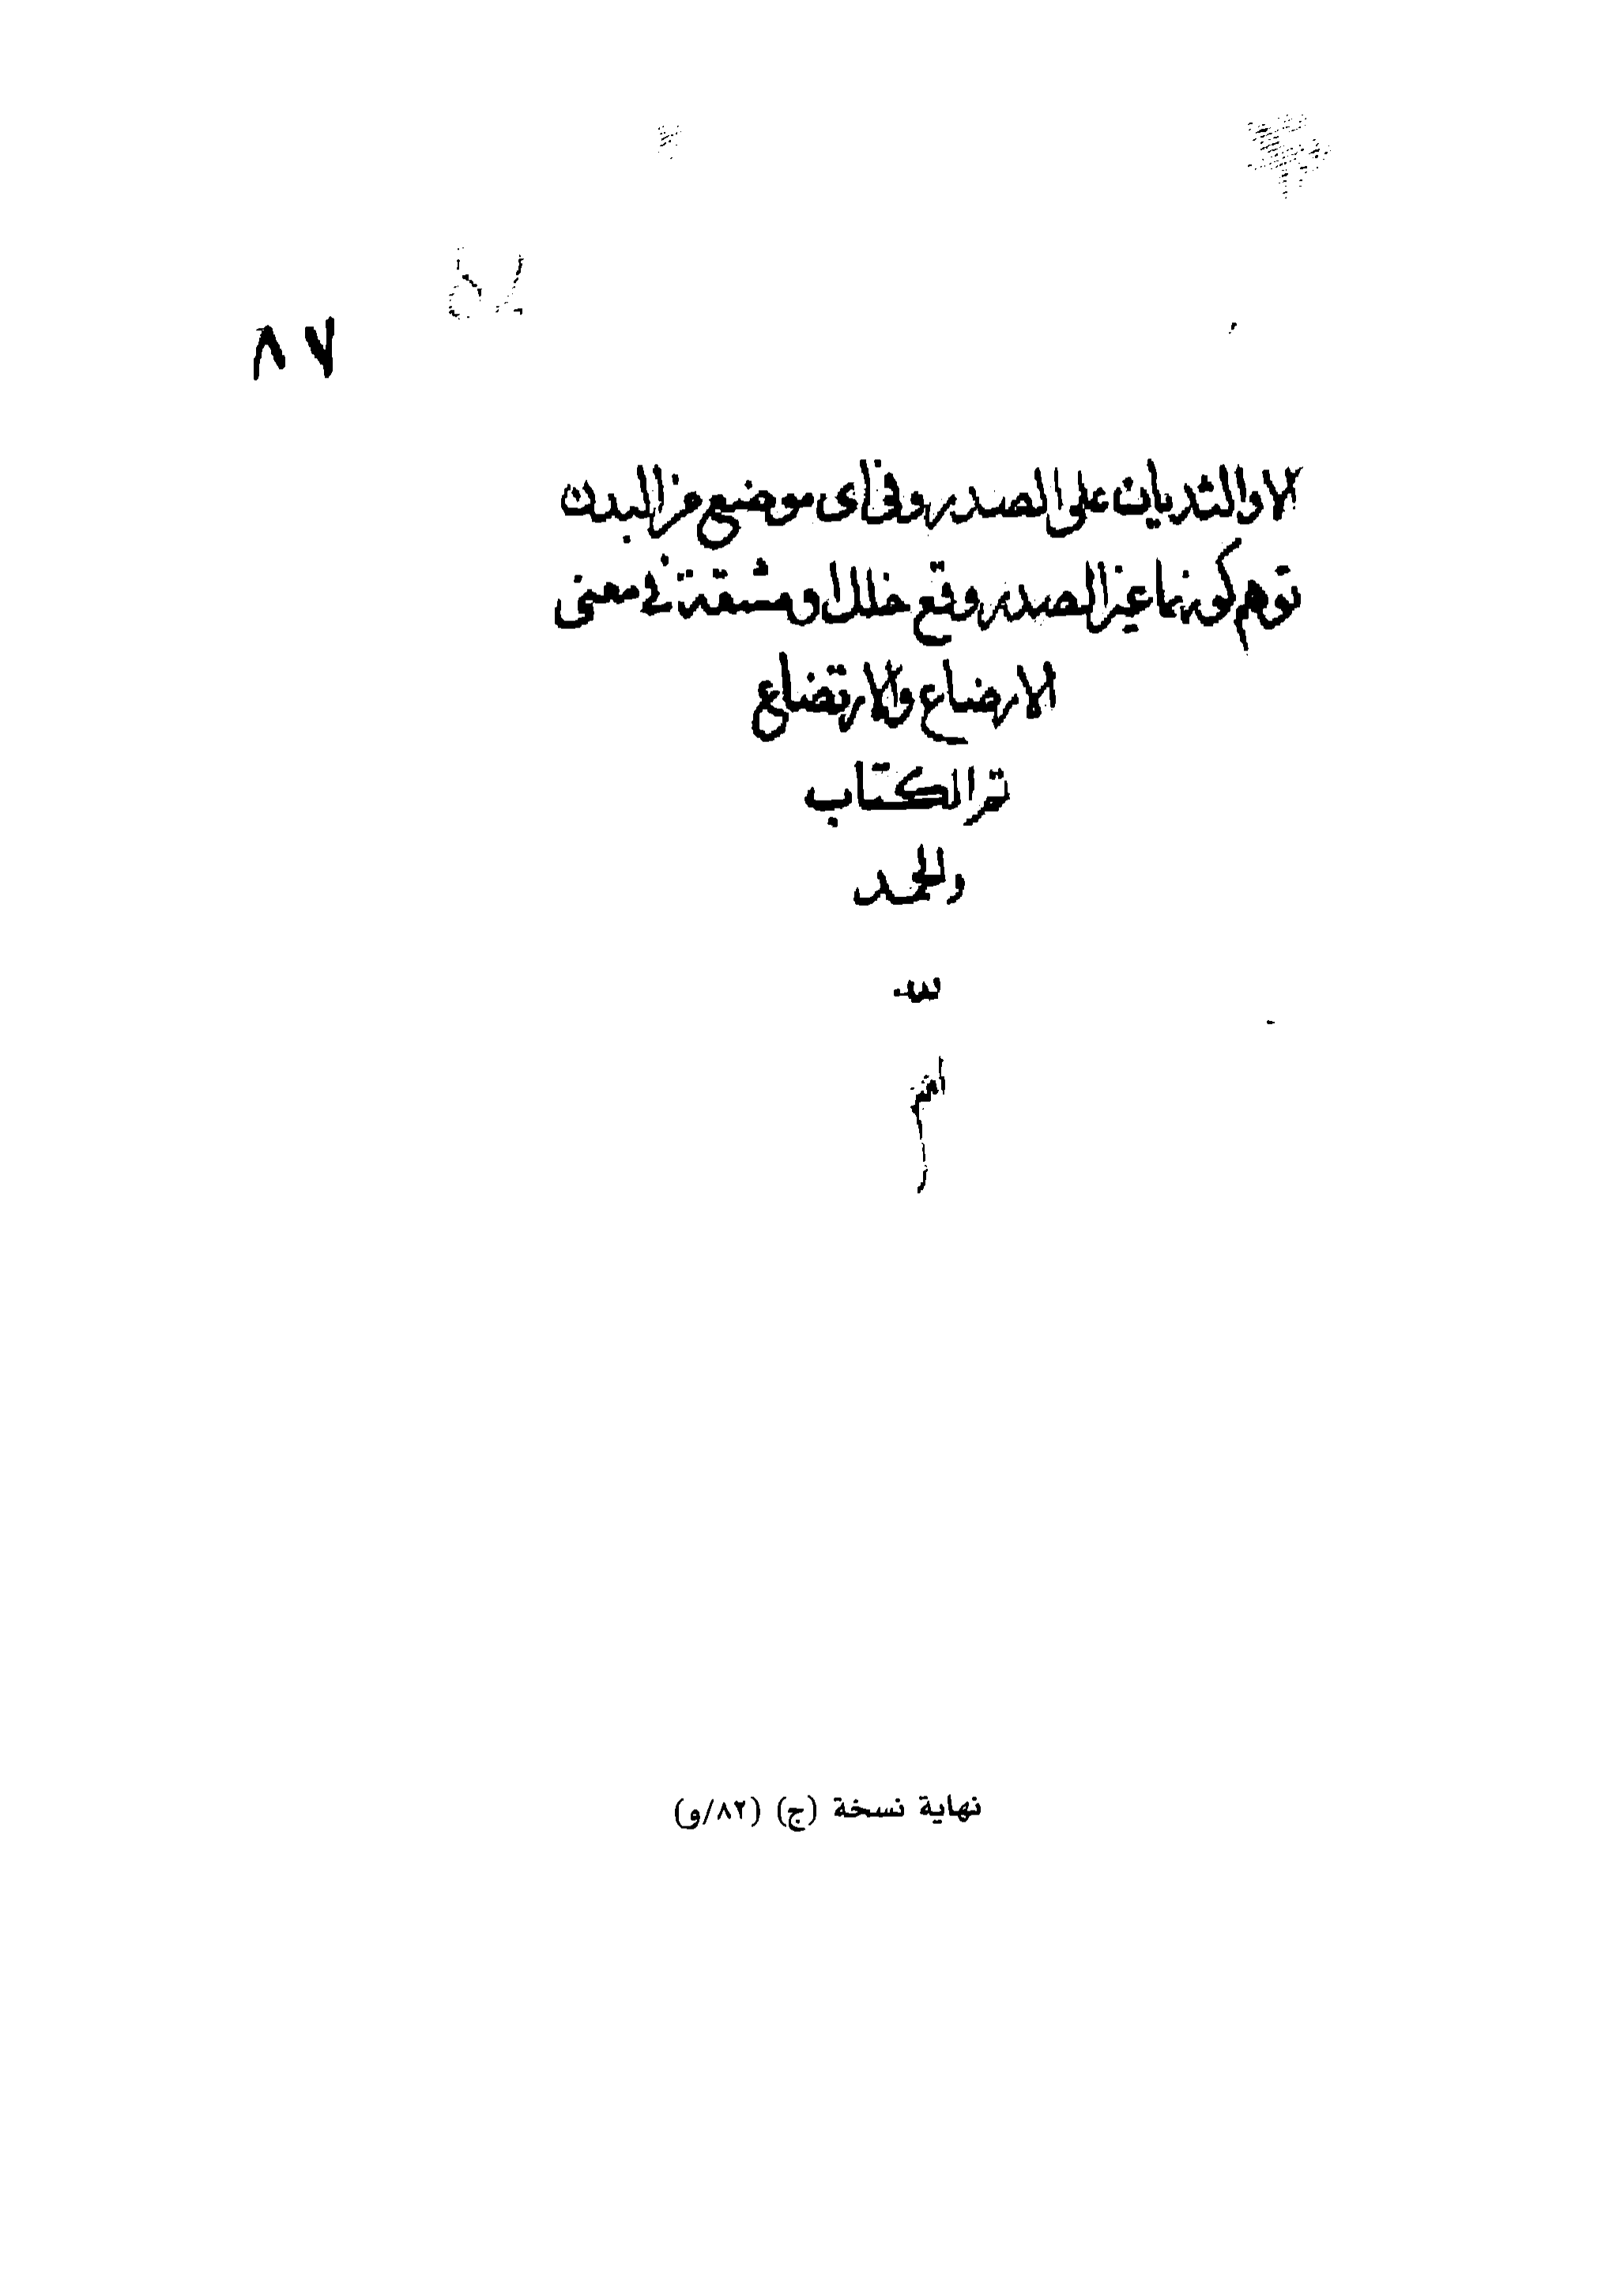 ٨٧
الا والثديان على الصدر وفي أى موضع من البدن
توهم كونهما غير الصدر وقع خلل او مشقة في معنى
الارضاع والارتضاع
تم الكتاب
والحمد
لله
نهاية نسخة (ج) (٨٢/و)